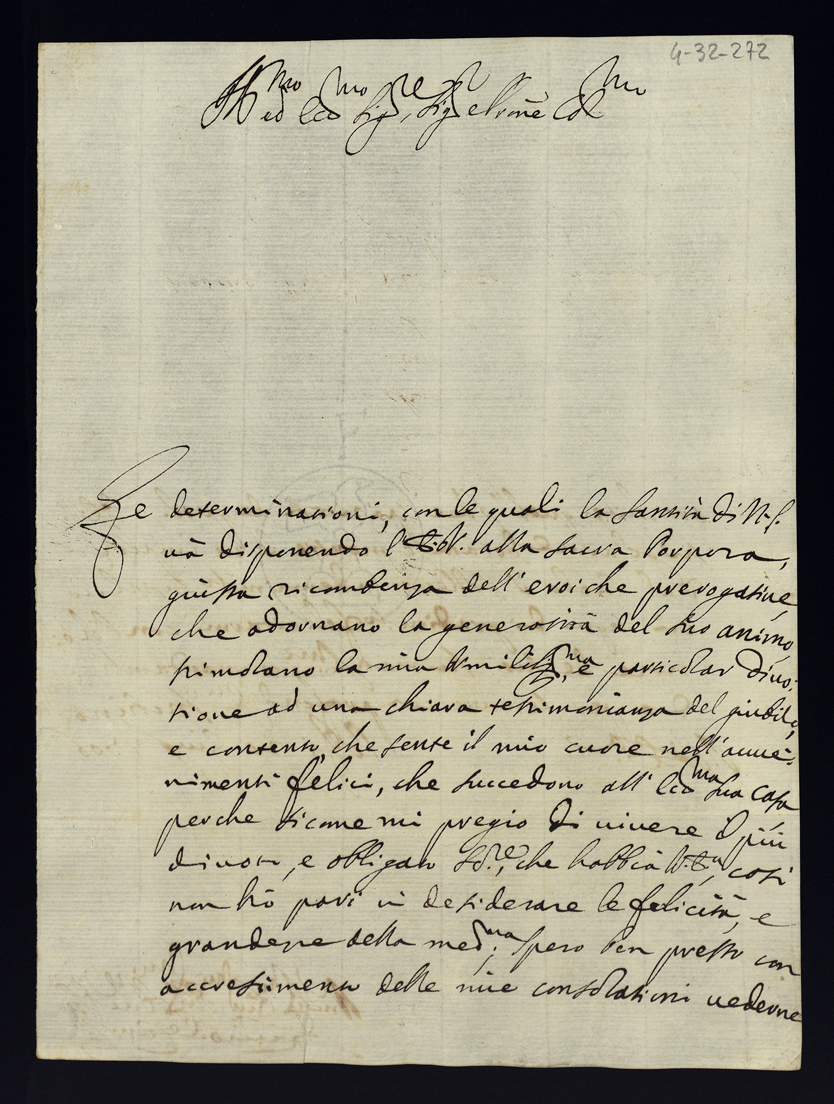 4-32-272
Ill.mo ed Ecc.mo Sig.re, Sig.r e Prone Col.mo
Le determinationi, con le quali la Santità di N. S.
và disponendo l'E. V. alla Sacra Porpora,
giusta ricondenza dell'eroiche prerogatiue,
che adornano la generosità del suo animo,
stimolano la mia humiliss.ma, e particolar diuo-
tione ad una chiara testimonianza del giubilo,
e contento, che sente il mio cuore nell'auue-
nimenti felici, che succedono all'Ecc.ma sua Casa
perche sicome mi pregio di uiuere il più
diuoto, e obligato Se.re, che habbia V. E.za, così
non hò pari in desiderare le felicità, e
grandezze della med.ma; spero ben presto con
accrescimento delle mie consolationi uederne